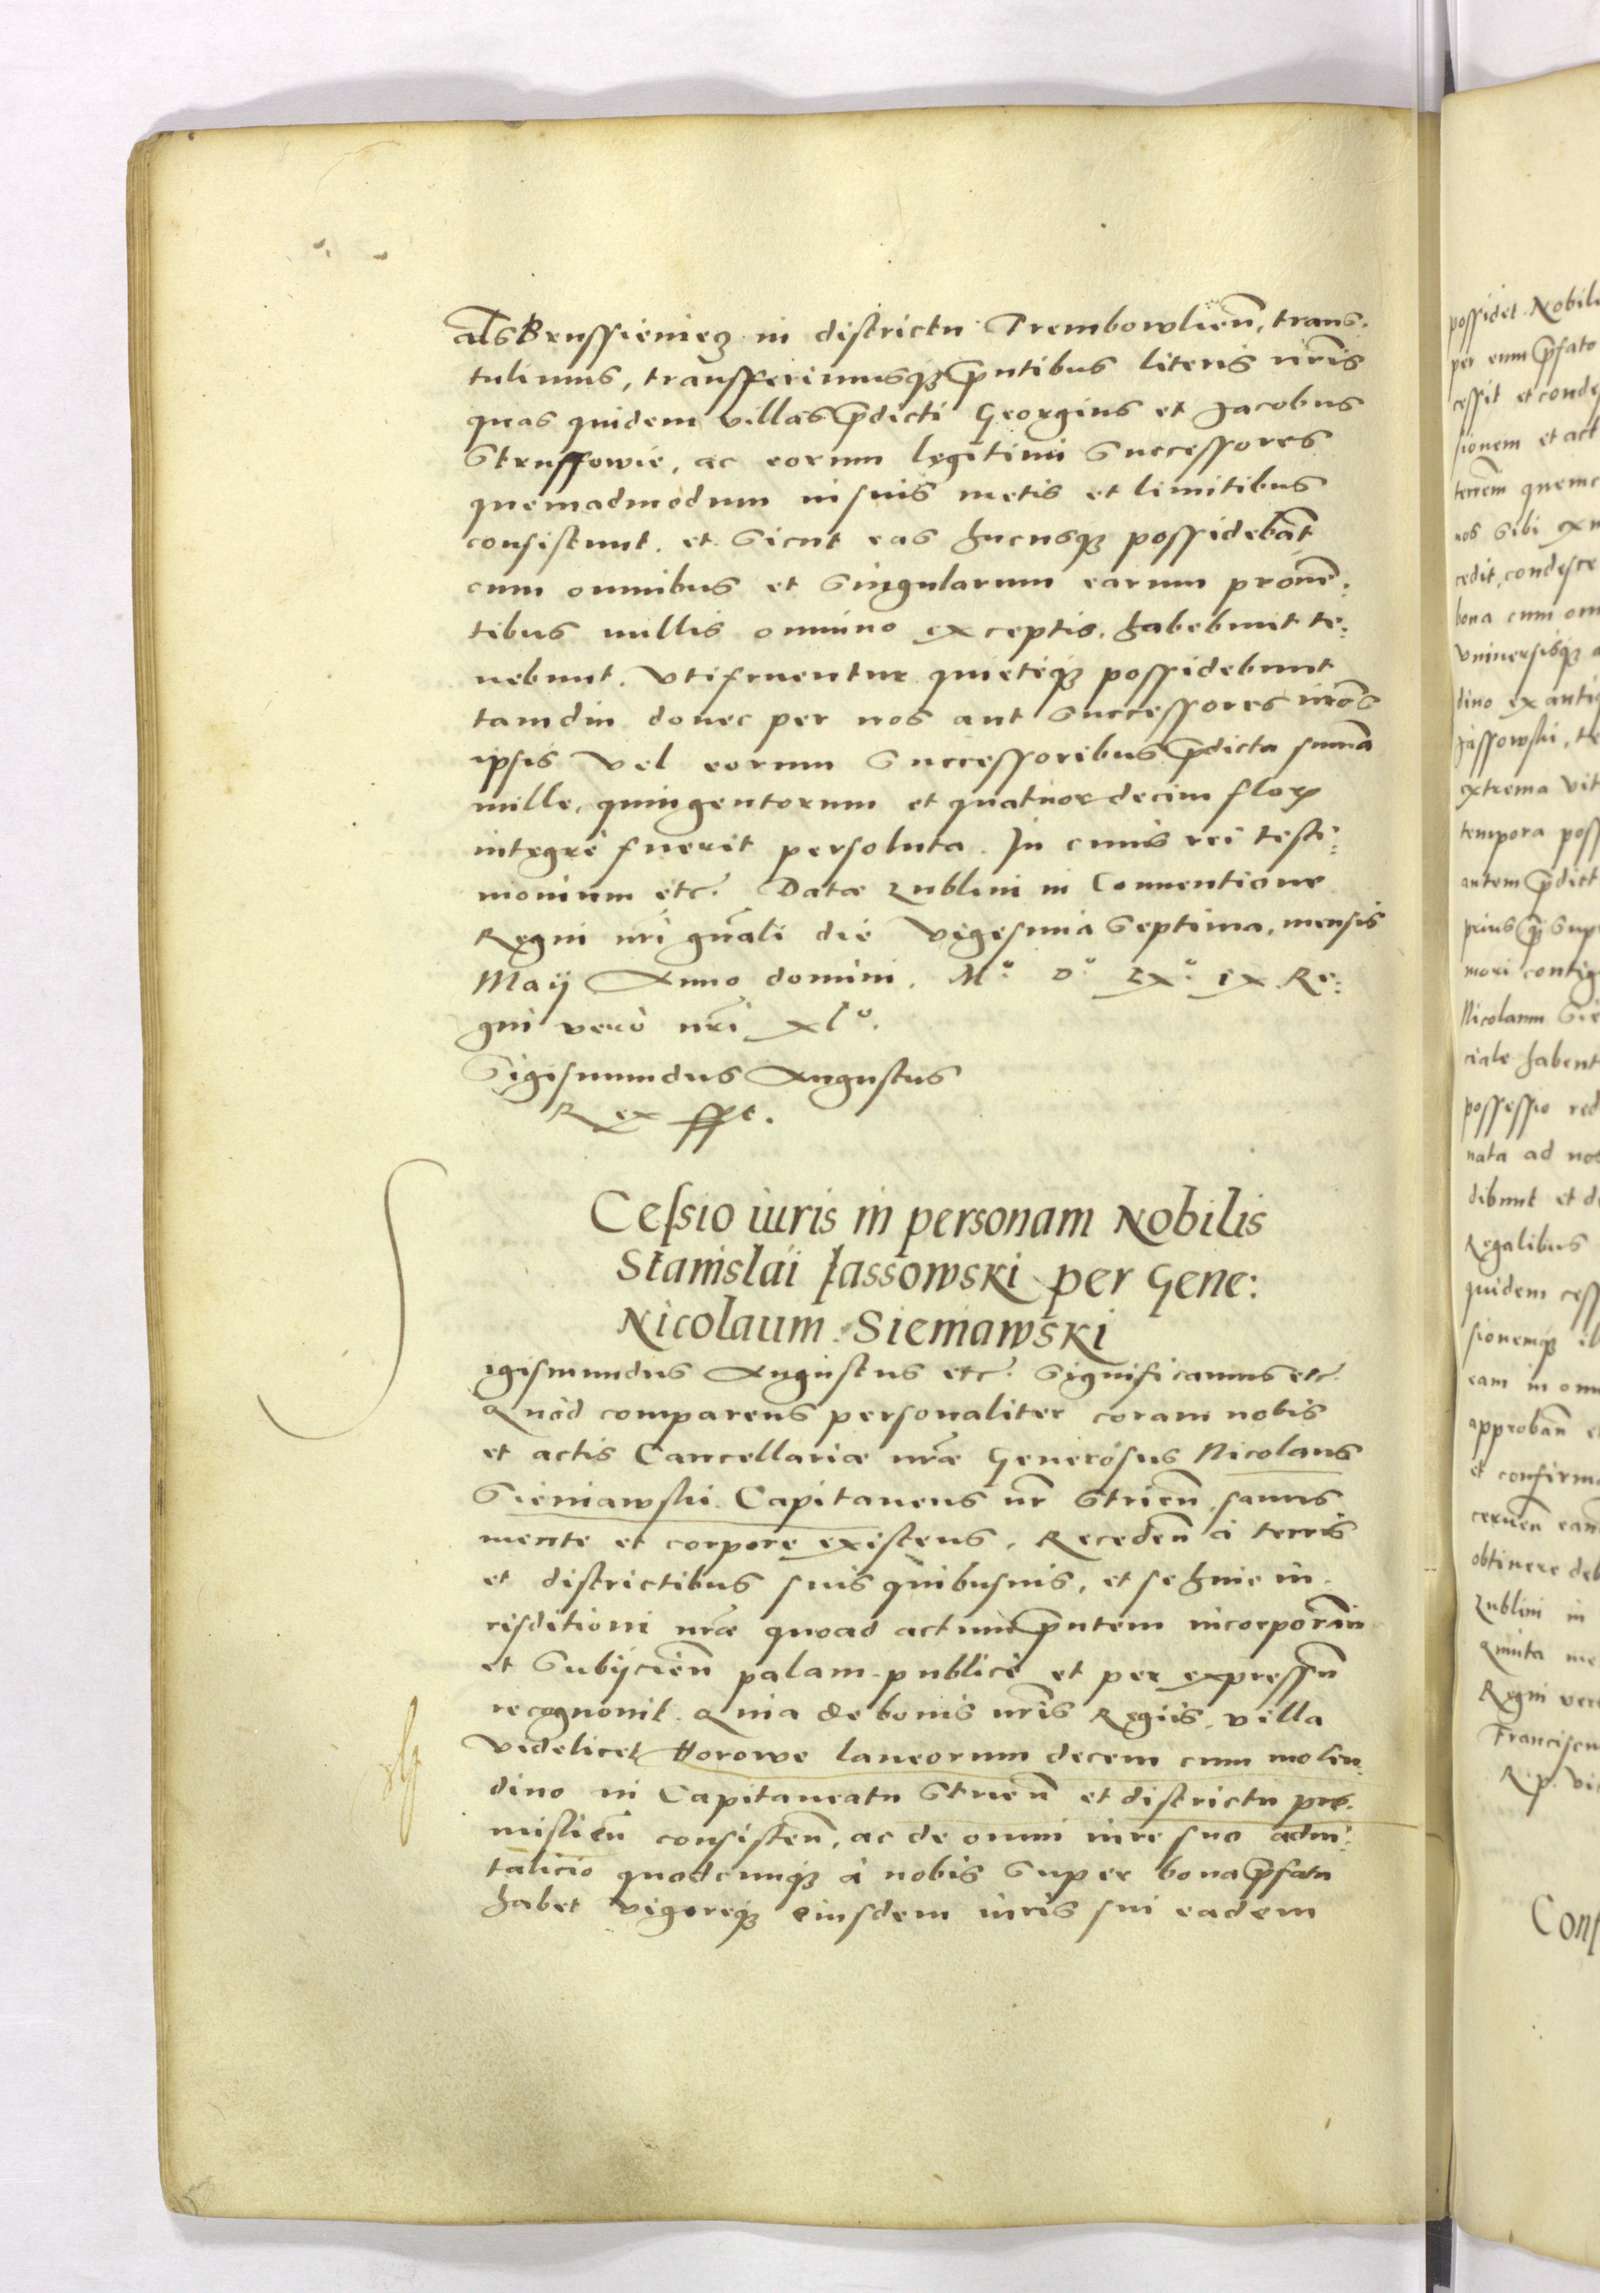 als Brussieniecz in districtu Trembowlien̄, trans.
tulimus, transferimusq; p̄ntibus literis nr̄is
quas quidem villas p̄dicti Georgius et Jacobus
Strussowie, ac eorum legitimi Successores
quemadmodum in suis metis et limitibus
consistunt. et Sicut eas hucusq; possidebāt
cum omnibus et Singularum earum prouē:
tibus nullis omnino exceptis. habebunt te:
nebunt. Vtifruentur quietiq; possidebunt
tamdiu donec per nos aut Successores nr̄os
ipsis Vel eorum Successoribus p̄dicta sum̄a
mille, quingentorum et quatuordecim flor.
integrè fuerit persoluta. In cuius rei testi:
monium etc. Datæ Lublini in Conuentione
Regni nr̄i gn̄ali die Vigesima Septima, mensis
Maÿ Anno domini. Mº Dº LXº IX Re:
gni verò nr̄i xlº.
Sigismundus Augustus
Rex sspt.
Cessio iuris in personam Nobilis
Stanislai Jassowski per Gene:
Nicolaum Sieniawski
Sigismundus Augustus etc. Significamus etc.
Quòd comparens personaliter coram nobis
et actis Cancellariæ nr̄æ Generosus Nicolaus
Sieniawski Capitaneus nr̄ Strien̄ sanus
mente et corpore existens, Receden̄ à terris
et districtibus suis quibusuis, et se huic iu
risditioni nr̄æ quoad actum p̄ntem incorporan̄
et Subijcien̄ palam publicè et per expressū
recognouit. Quia de bonis nr̄is Regiis, villa
videlicet Horowe laneorum decem cum molen:
dino in Capitaneatu Strien̄ et districtu pre:
mislien̄ consisten̄, ac de omni iure suo advi:
talicio quodcunq; à nobis Super bona p̄fata
habet Vigoreq; eiusdem iuris sui eadem
possidet Nobili
per eum p̄fato
cessit et conde
sionem et act
terrem̄ quemc
nos Sibi ex
cedit, condesce
bona cum om
Vniuersisq; a
dino ex anti
Jassowski, te
extrema vit
tempora poss
autem p̄dict
prius q̄ Sup
mori contig
Nicolaum Sie
ciale habent
possessio red
nata ad nos
dibunt et de
Regalibus
quidem cess
sionemq; il
eam in om
approban̄ et
et confirma
cernen̄ eam
obtinere deb
Lublini in
Quinta me
Regni ver
Franciscus
R. p. Vic
Conf